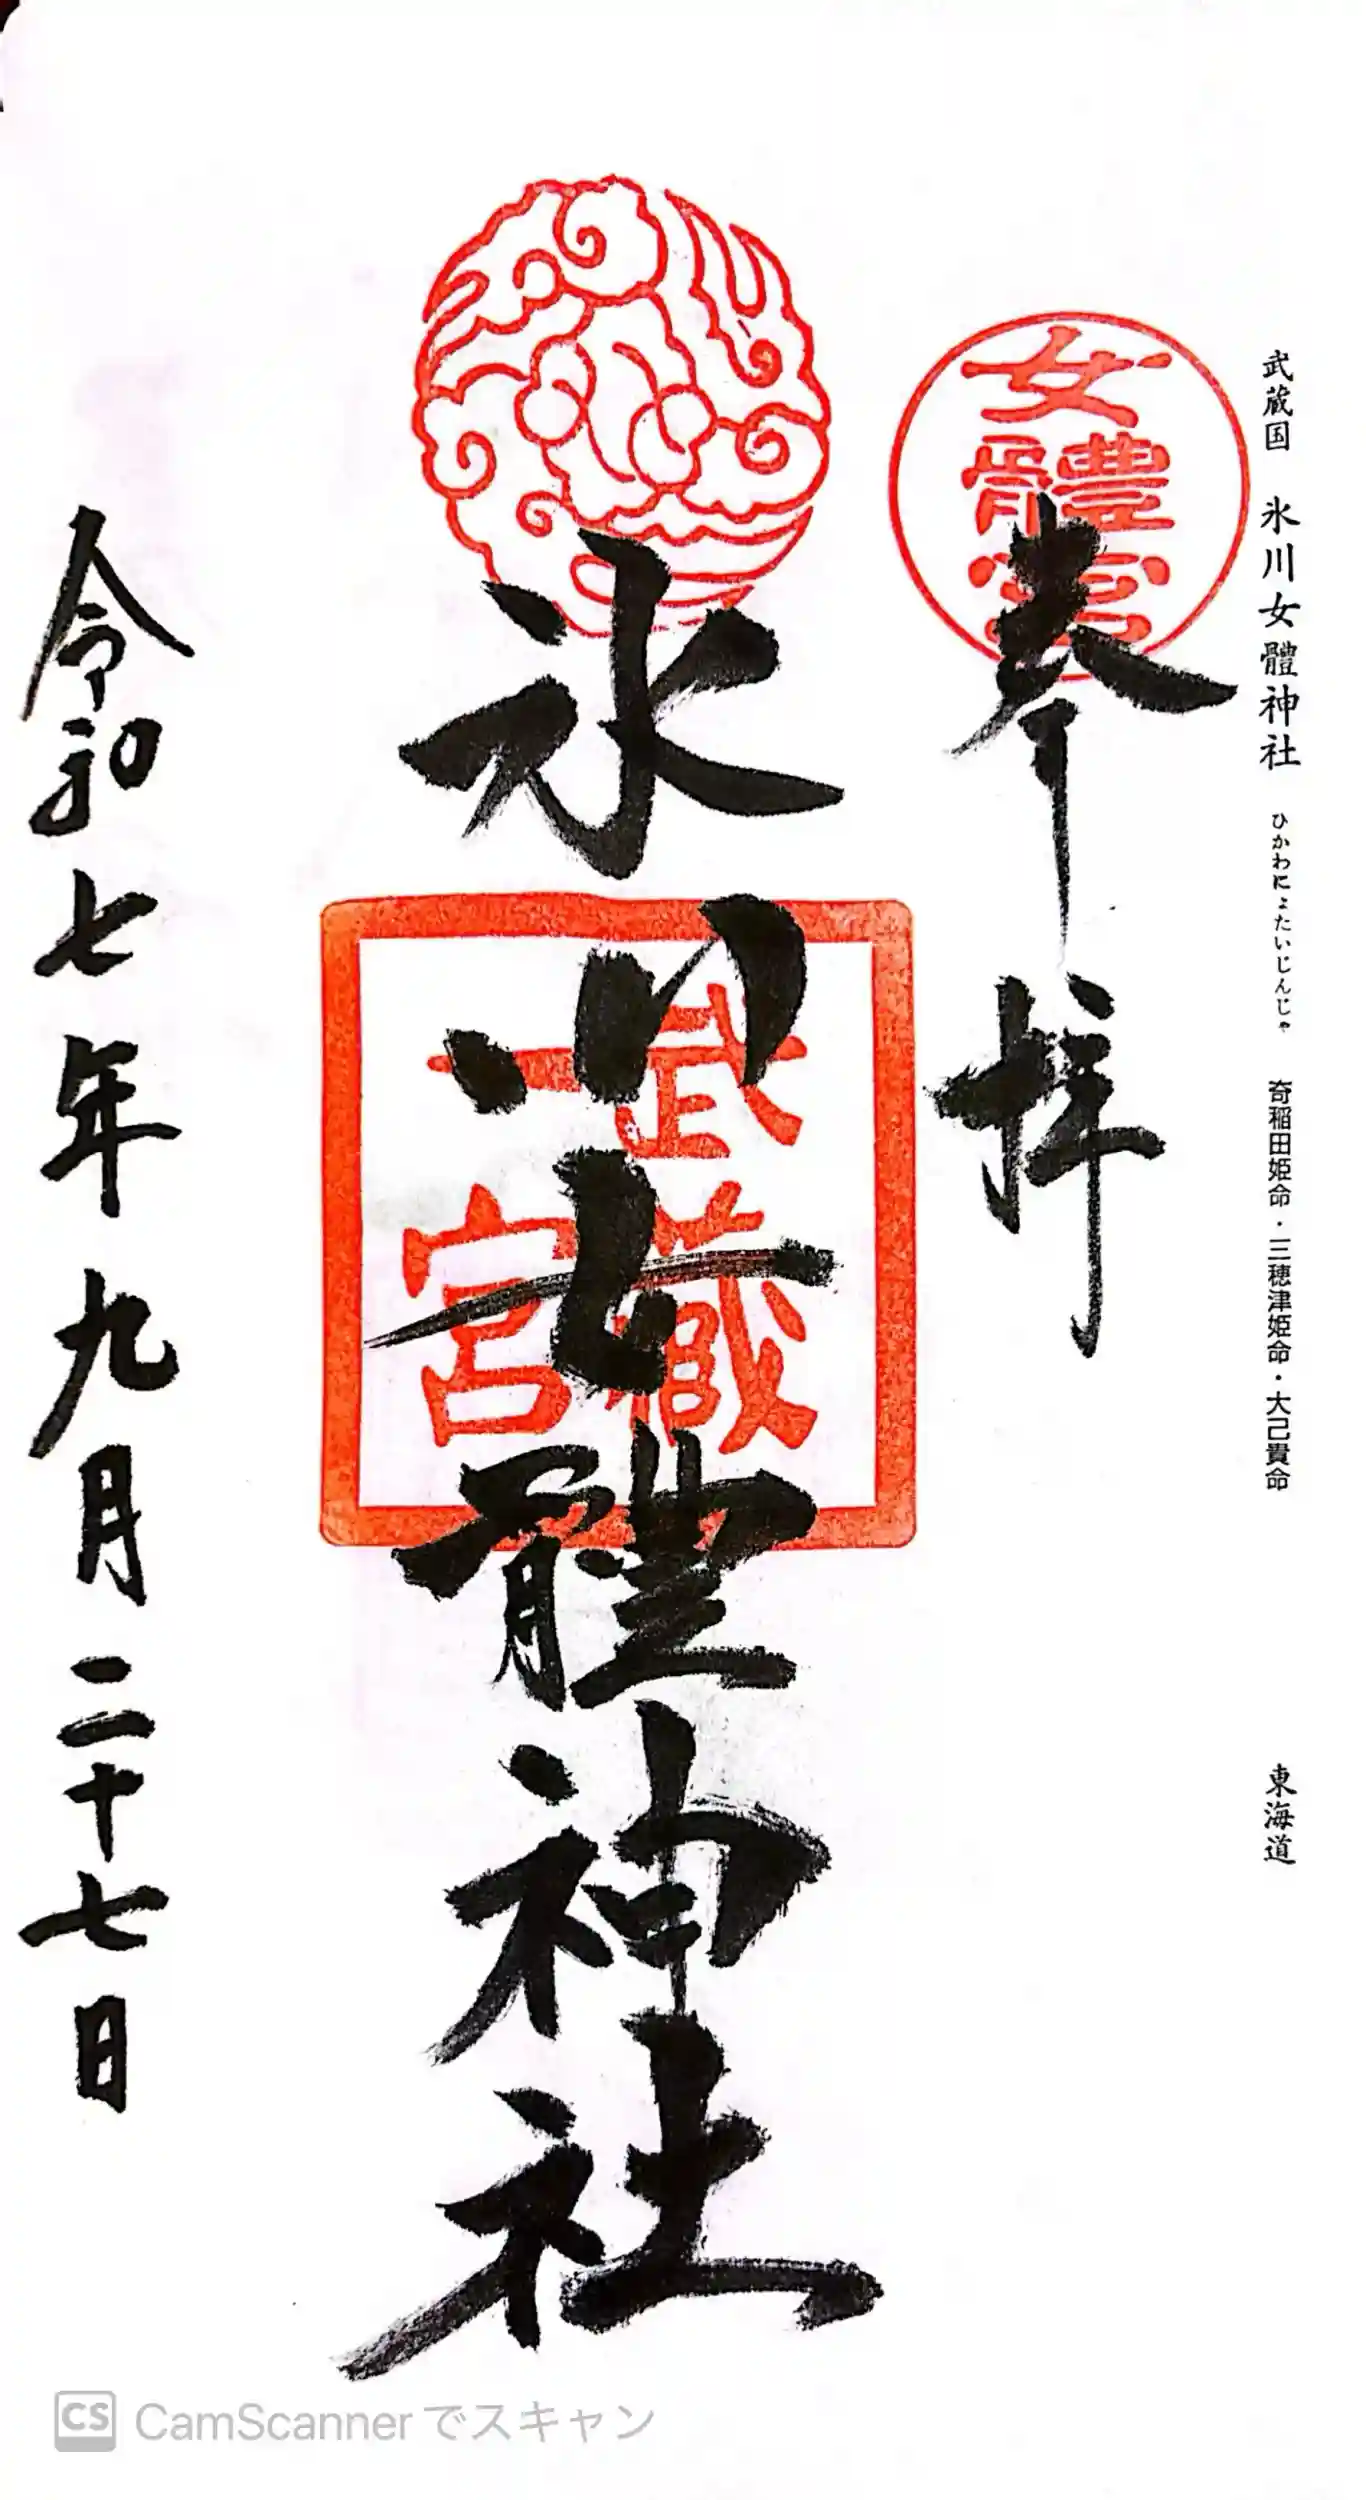 武蔵国 氷川女體神社 ひかわにょたいじんじゃ 奇稲田姫命・三穂津姫命・大己貴命 東海道
女體宮
奉拝
氷川女體神社
武蔵
一宮
令和七年九月二十七日
CS CamScannerでスキャン